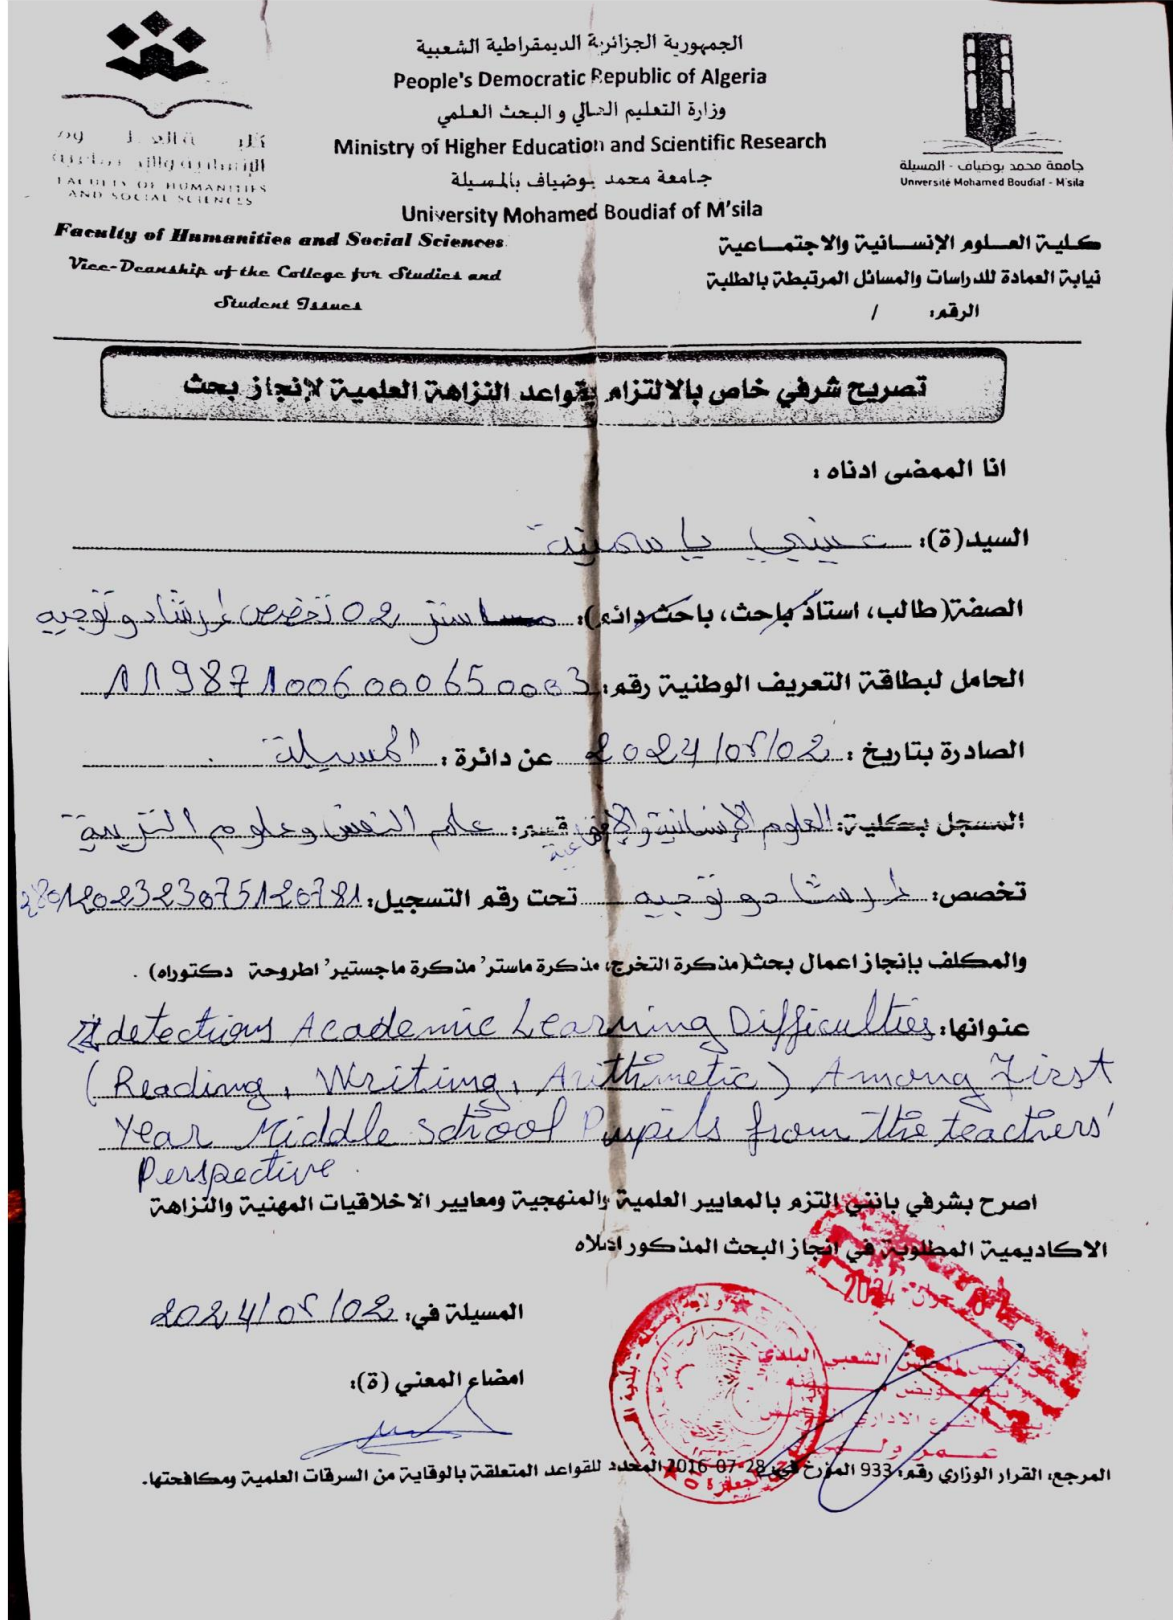 الجمهورية الجزائرية الديمقراطية الشعبية
People's Democratic Republic of Algeria
وزارة التعليم العالي و البحث العلمي
Ministry of Higher Education and Scientific Research
جامعة محمد بوضياف بالمسيلة
University Mohamed Boudiaf of M'sila
FACULTY OF HUMANITIES
AND SOCIAL SCIENCES
جامعة محمد بوضياف - المسيلة
Université Mohamed Boudiaf - M'sila
كلية العلوم الإنسانية والاجتماعية
نيابة العمادة للدراسات والمسائل المرتبطة بالطلبة
الرقم: /
Faculty of Humanities and Social Sciences
Vice-Deanship of the College for Studies and
Student Issues
تصريح شرفي خاص بالالتزام بقواعد النزاهة العلمية لإنجاز بحث
انا الممضى ادناه :
السيد(ة): عيني ياسمينة
الصفة(طالب، استاذ باحث، باحث دائم): ماستر 02 تخصص إرشاد و توجيه
الحامل لبطاقة التعريف الوطنية رقم: 119871006000650003
الصادرة بتاريخ : 2024/05/02 عن دائرة : المسيلة
المسجل بكلية: العلوم الإنسانية والإجتماعية قسم: علم النفس وعلوم التربية
تخصص: إرشاد و توجيه تحت رقم التسجيل:
والمكلف بإنجاز اعمال بحث(مذكرة التخرج، مذكرة ماستر' مذكرة ماجستير' اطروحة دكتوراه) .
عنوانها: detections Academic Learning Difficulties
(Reading, Writing, Arithmetic) Among First
Year Middle School Pupils from the teachers'
Perspective.
اصرح بشرفي بانني التزم بالمعايير العلمية والمنهجية ومعايير الاخلاقيات المهنية والنزاهة
الاكاديمية المطلوبة في انجاز البحث المذكور اعلاه
المسيلة في: 2024/05/02
امضاء المعني (ة):
المرجع: القرار الوزاري رقم: 933 المؤرخ في: 28-07-2016 المحدد للقواعد المتعلقة بالوقاية من السرقات العلمية ومكافحتها.